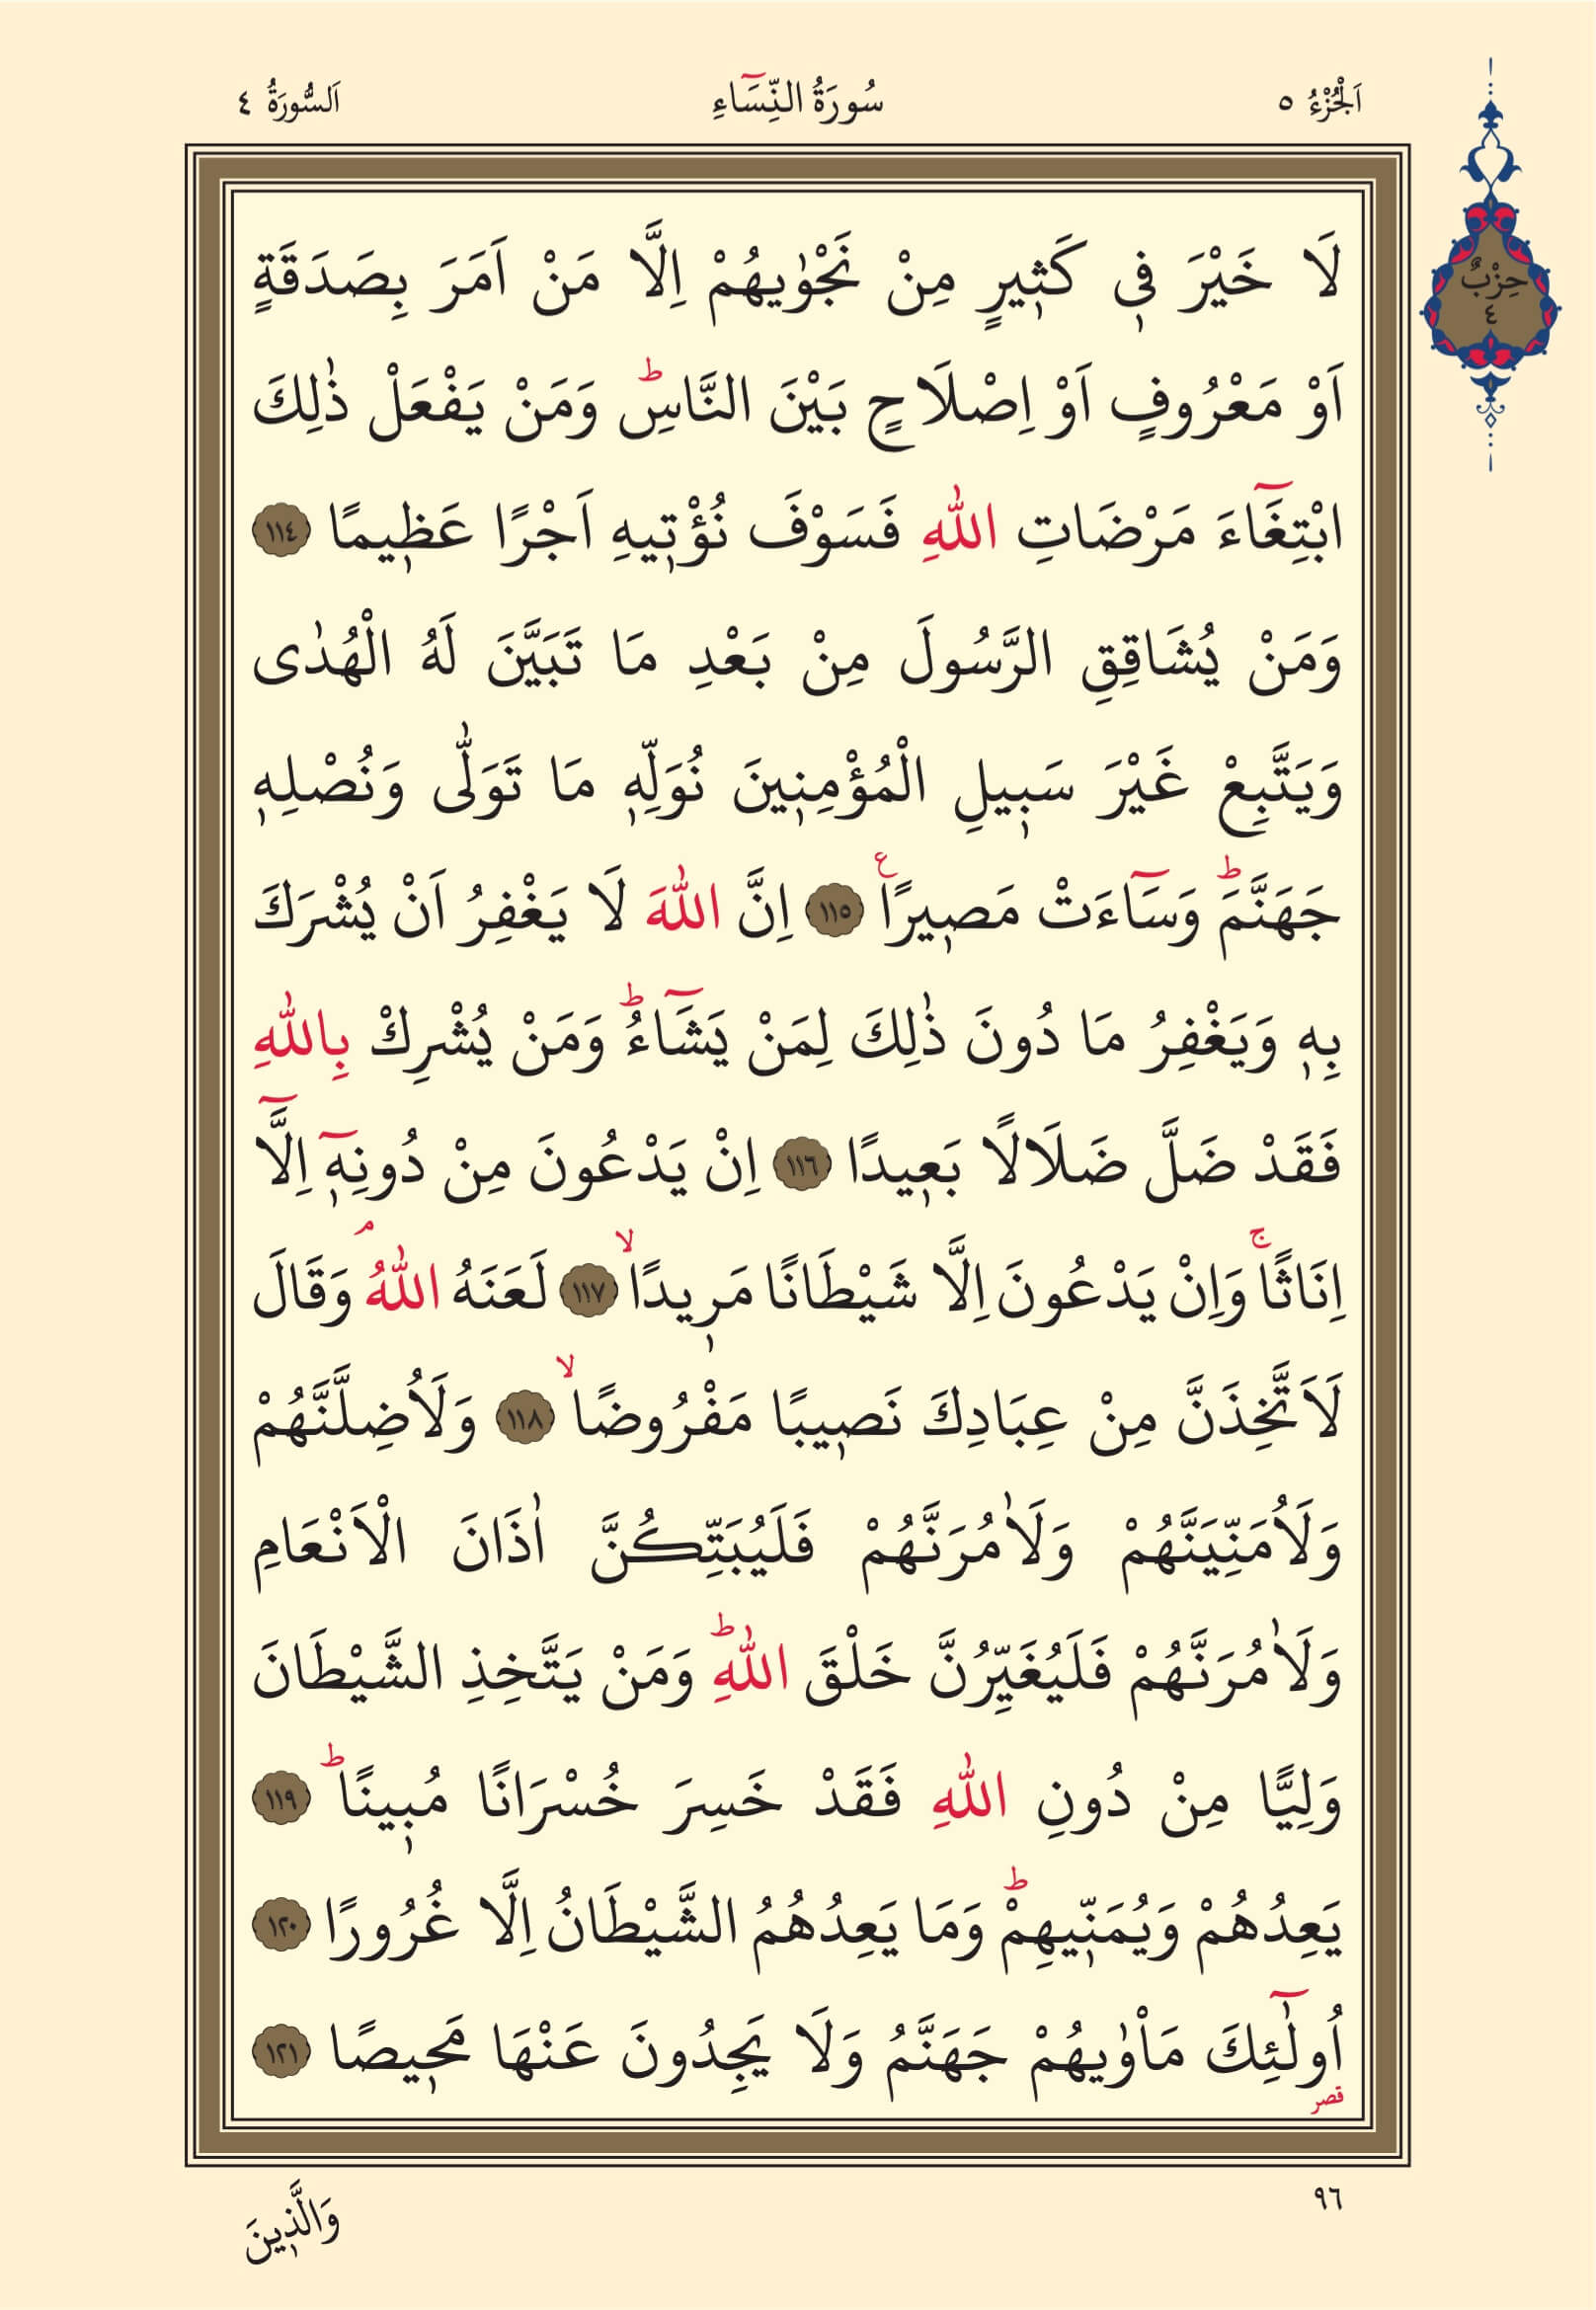 اَلْجُزْءُ ٥
سُورَةُ النِّسَٓاءِ
اَلسُّورَةُ ٤
حِزْبٌ
٤
لَا خَيْرَ ف۪ي كَث۪يرٍ مِنْ نَجْوٰيهُمْ اِلَّا مَنْ اَمَرَ بِصَدَقَةٍ
اَوْ مَعْرُوفٍ اَوْ اِصْلَاحٍ بَيْنَ النَّاسِۜ وَمَنْ يَفْعَلْ ذٰلِكَ
ابْتِغَٓاءَ مَرْضَاتِ اللّٰهِ فَسَوْفَ نُؤْت۪يهِ اَجْرًا عَظ۪يمًا ﴿١١٤﴾
وَمَنْ يُشَاقِقِ الرَّسُولَ مِنْ بَعْدِ مَا تَبَيَّنَ لَهُ الْهُدٰى
وَيَتَّبِعْ غَيْرَ سَب۪يلِ الْمُؤْمِن۪ينَ نُوَلِّه۪ مَا تَوَلّٰى وَنُصْلِه۪
جَهَنَّمَۜ وَسَٓاءَتْ مَص۪يرًاࣖ ﴿١١٥﴾ اِنَّ اللّٰهَ لَا يَغْفِرُ اَنْ يُشْرَكَ
بِه۪ وَيَغْفِرُ مَا دُونَ ذٰلِكَ لِمَنْ يَشَٓاءُۜ وَمَنْ يُشْرِكْ بِاللّٰهِ
فَقَدْ ضَلَّ ضَلَالًا بَع۪يدًا ﴿١١٦﴾ اِنْ يَدْعُونَ مِنْ دُونِه۪ٓ اِلَّٓا
اِنَاثًاۚ وَاِنْ يَدْعُونَ اِلَّا شَيْطَانًا مَر۪يدًاۙ ﴿١١٧﴾ لَعَنَهُ اللّٰهُۢ وَقَالَ
لَاَتَّخِذَنَّ مِنْ عِبَادِكَ نَص۪يبًا مَفْرُوضًاۙ ﴿١١٨﴾ وَلَاُضِلَّنَّهُمْ
وَلَاُمَنِّيَنَّهُمْ وَلَاٰمُرَنَّهُمْ فَلَيُبَتِّكُنَّ اٰذَانَ الْاَنْعَامِ
وَلَاٰمُرَنَّهُمْ فَلَيُغَيِّرُنَّ خَلْقَ اللّٰهِۜ وَمَنْ يَتَّخِذِ الشَّيْطَانَ
وَلِيًّا مِنْ دُونِ اللّٰهِ فَقَدْ خَسِرَ خُسْرَانًا مُب۪ينًاۜ ﴿١١٩﴾
يَعِدُهُمْ وَيُمَنّ۪يهِمْۜ وَمَا يَعِدُهُمُ الشَّيْطَانُ اِلَّا غُرُورًا ﴿١٢٠﴾
اُو۬لٰٓئِكَ مَأْوٰيهُمْ جَهَنَّمُ وَلَا يَجِدُونَ عَنْهَا مَح۪يصًا ﴿١٢١﴾
قصر
٩٦
وَالَّذ۪ينَ